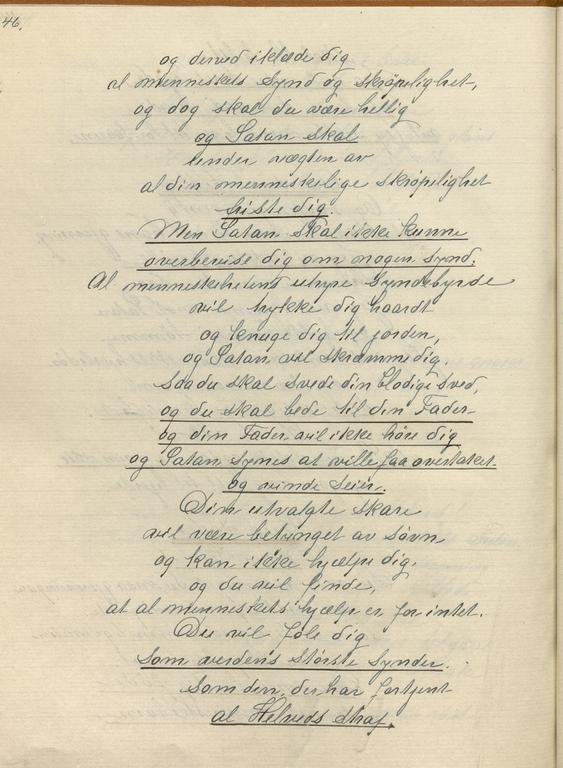 46.
og derved iklæde dig
al menneskets Synd og skröpelighet,
og dog skal du være hellig
og Satan skal
under vægten av
al din menneskelige skröpelighet
friste dig.
Men Satan skal ikke kunne
overbevise dig om nogen synd.
Al menneskehetens uhyre Syndebyrde
vil trykke dig haardt
og knuge dig til jorden,
og Satan vil skræmme dig.
saa du skal svede din blodige sved,
og du skal bede til din Fader
og din Fader vil ikke höre dig
og Satan synes at ville faa overtaket
og vinde Seier.
Din utvalgte skare
vil være betvinget av sövn
og kan ikke hjælpe dig.
og du vil finde,
at al menneskets hjælp er for intet.
Du vil föle dig
som verdens störste synder.
som den, der har fortjent
al Helveds straf.